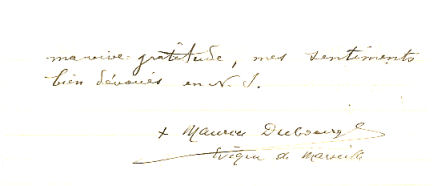 ma vive gratitude, mes sentiments
bien dévoués en N. S.
+ Maurice Dubourg
évêque de Marseille